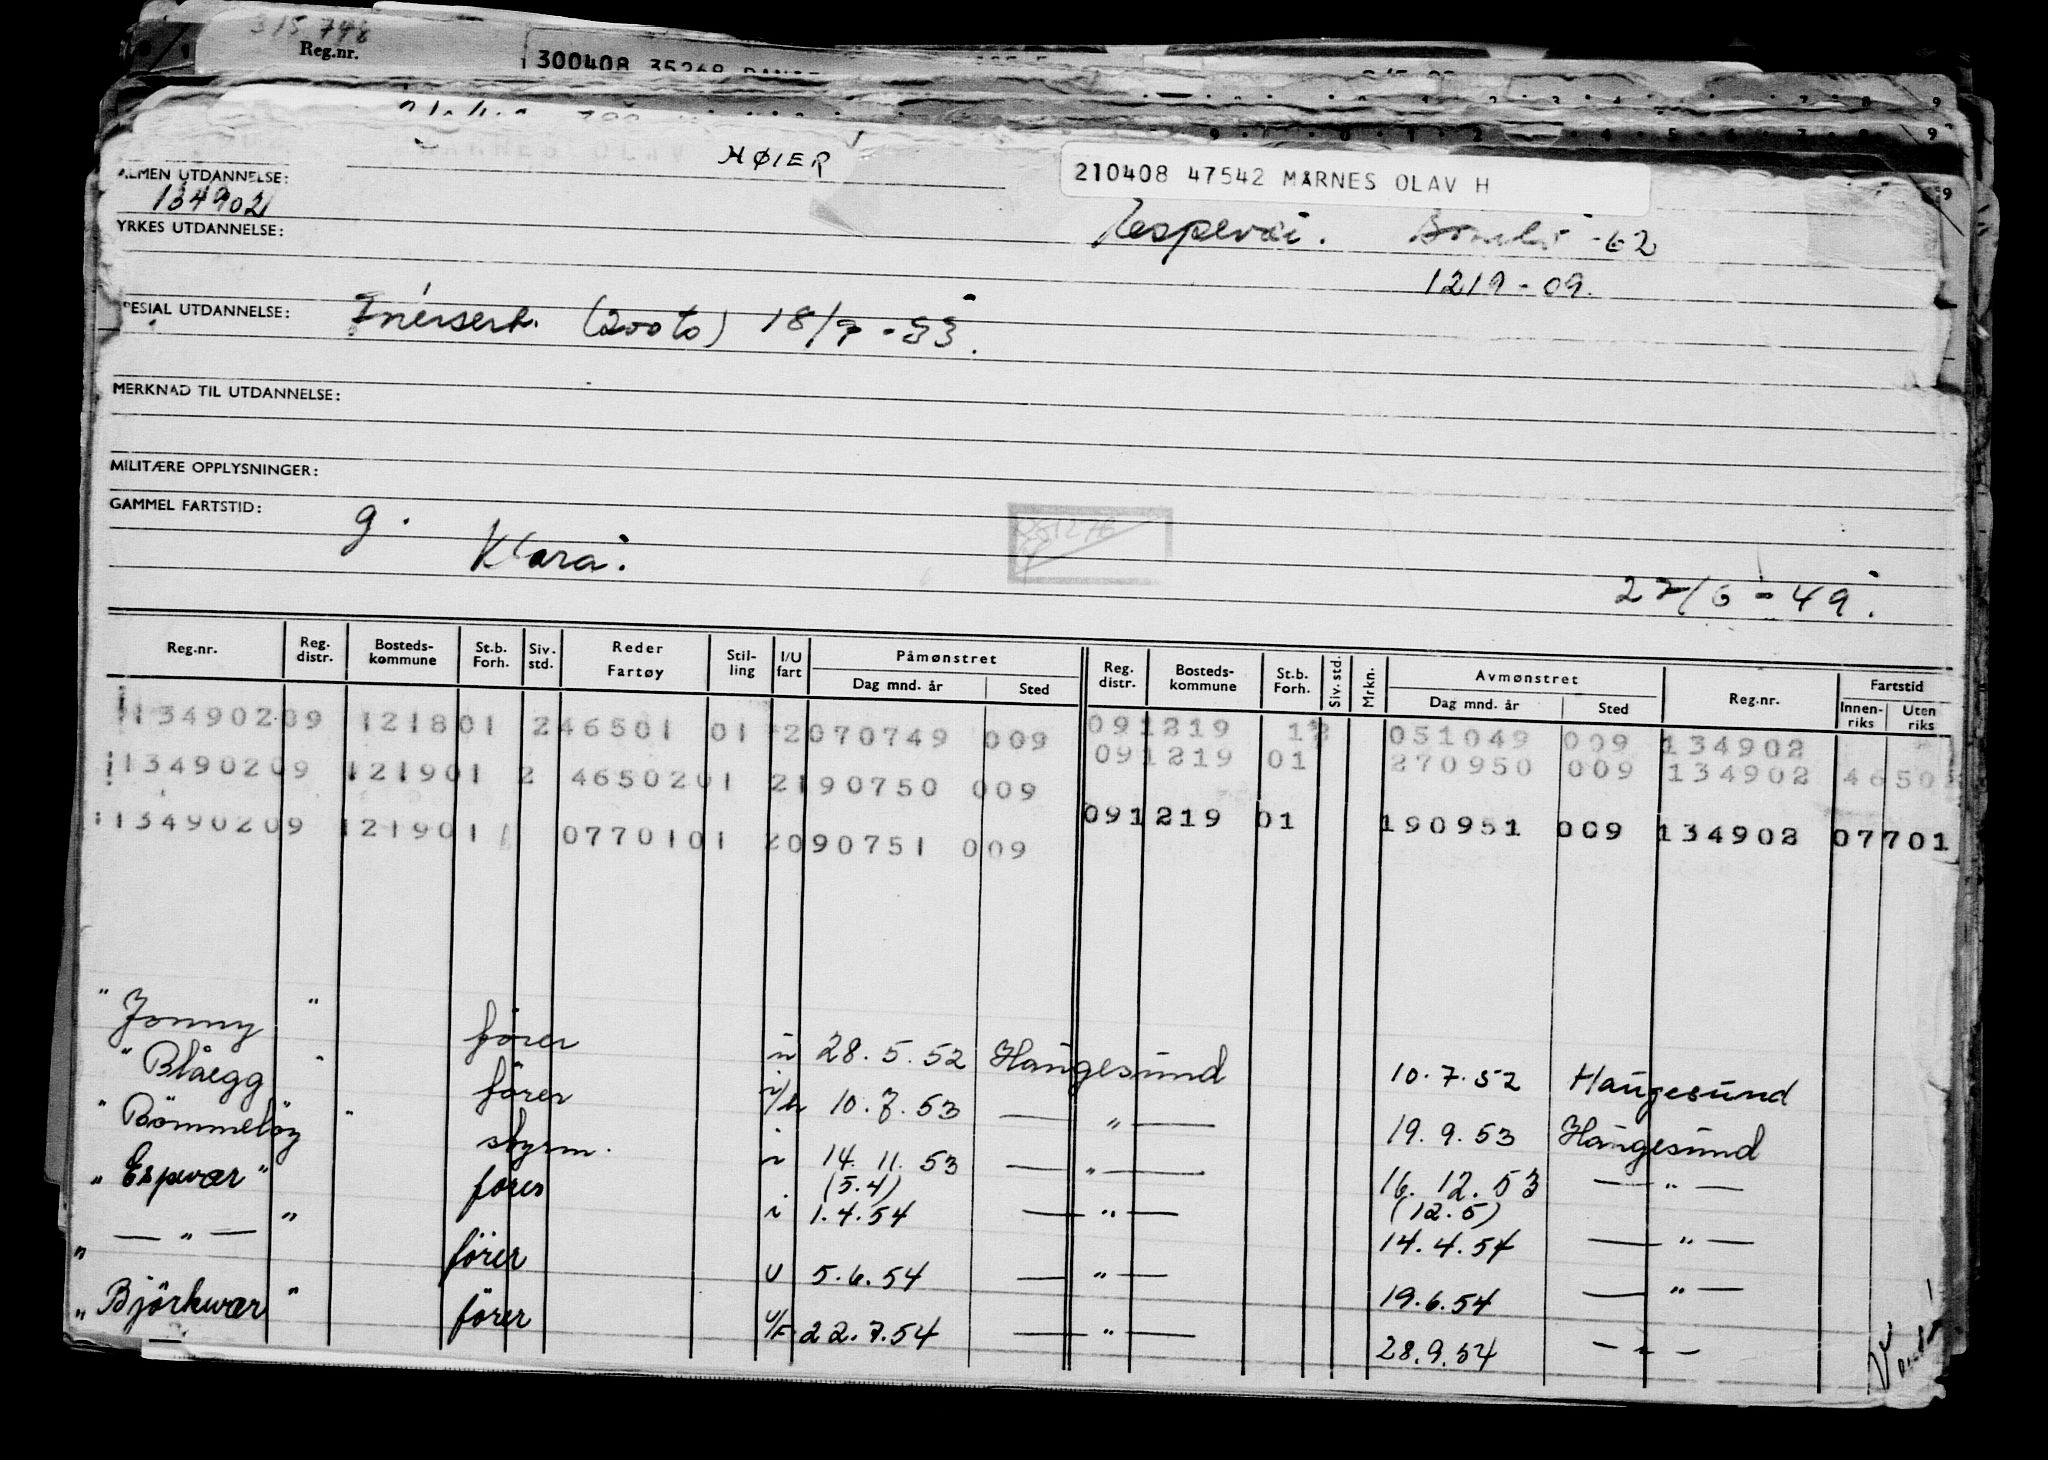 315 798
Reg.nr.
300408 35268
HØIER
210408 47542 MARNES OLAV H
ALMEN UTDANNELSE:
134902
YRKES UTDANNELSE:
Espevær. Bømlo -62
1219-09.
SPESIAL UTDANNELSE: (200 to) 18/9-53.
MERKNAD TIL UTDANNELSE:
MILITÆRE OPPLYSNINGER:
GAMMEL FARTSTID: g.
Klara.
22/6-49.
Reg.nr. Reg. distr. Bosteds-kommune St.b. Forh. Siv. std. Reder Fartøy Stil-ling I/U fart Påmønstret Dag mnd. år Sted Reg. distr. Bosteds-kommune St.b. Forh. Siv. std. Mrkn. Avmønstret Dag mnd. år Sted Reg.nr. Fartstid Innen-riks Uten riks
13490209 121801 246501 01 2070749 009 091219 051049 009 134902
13490209 121901 2 4650201 2190750 009 091219 01 270950 009 134902 46502
13490209 121901 0770101 2090751 009 091219 01 190951 009 134902 07701
" Jonny " fører u 28.5.52 Haugesund 10.7.52 Haugesund
" Blåegg " fører 10.7.53 — " — 19.9.53 Haugesund
" Bömmelöy " styrm. i 14.11.53 — " — 16.12.53 — " —
" Espevær " fører i (5.4) 1.4.54 — " — (12.5) 14.4.54 — " —
" — " — " förer U 5.6.54 — " — 19.6.54 — " —
" Björkvær " förer 22.7.54 — " — 28.9.54 — " —